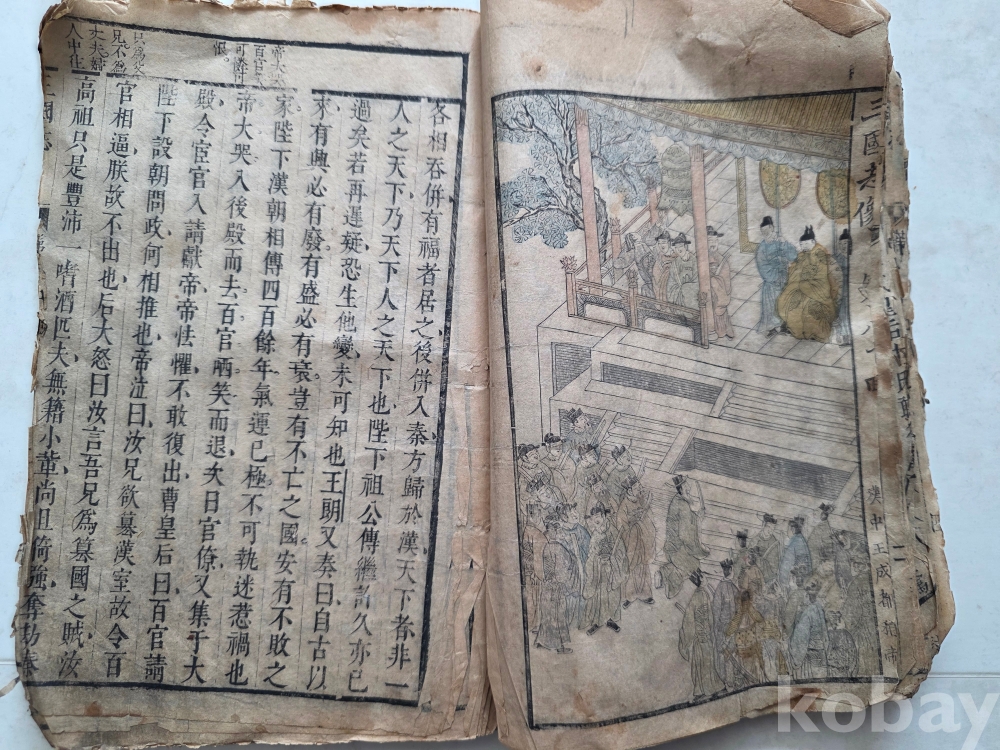 三國志像
漢中王成都稱帝
各相吞併有福者居之後併入秦方歸於漢天下者非一
人之天下乃天下人之天下也陛下祖公傳繼許久亦已
過矣若再遲疑恐生他變未可知也王朗又奏曰自古以
來有興必有廢有盛必有衰豈有不亡之國安有不敗之
家陛下漢朝相傳四百餘年氣運已極不可執迷惹禍也
帝大哭入後殿而去百官哂笑而退次日官僚又集于大
殿令宦官入請獻帝帝怯懼不敢復出曹皇后曰百官請
陛下設朝問政何相推也帝泣曰汝兄欲篡漢室故令百
官相逼朕故不出也后大怒曰汝言吾兄爲篡國之賊汝
高祖只是豐沛一嗜酒匹夫無籍小輩尚且倚強奪劫秦
三國志
kobay